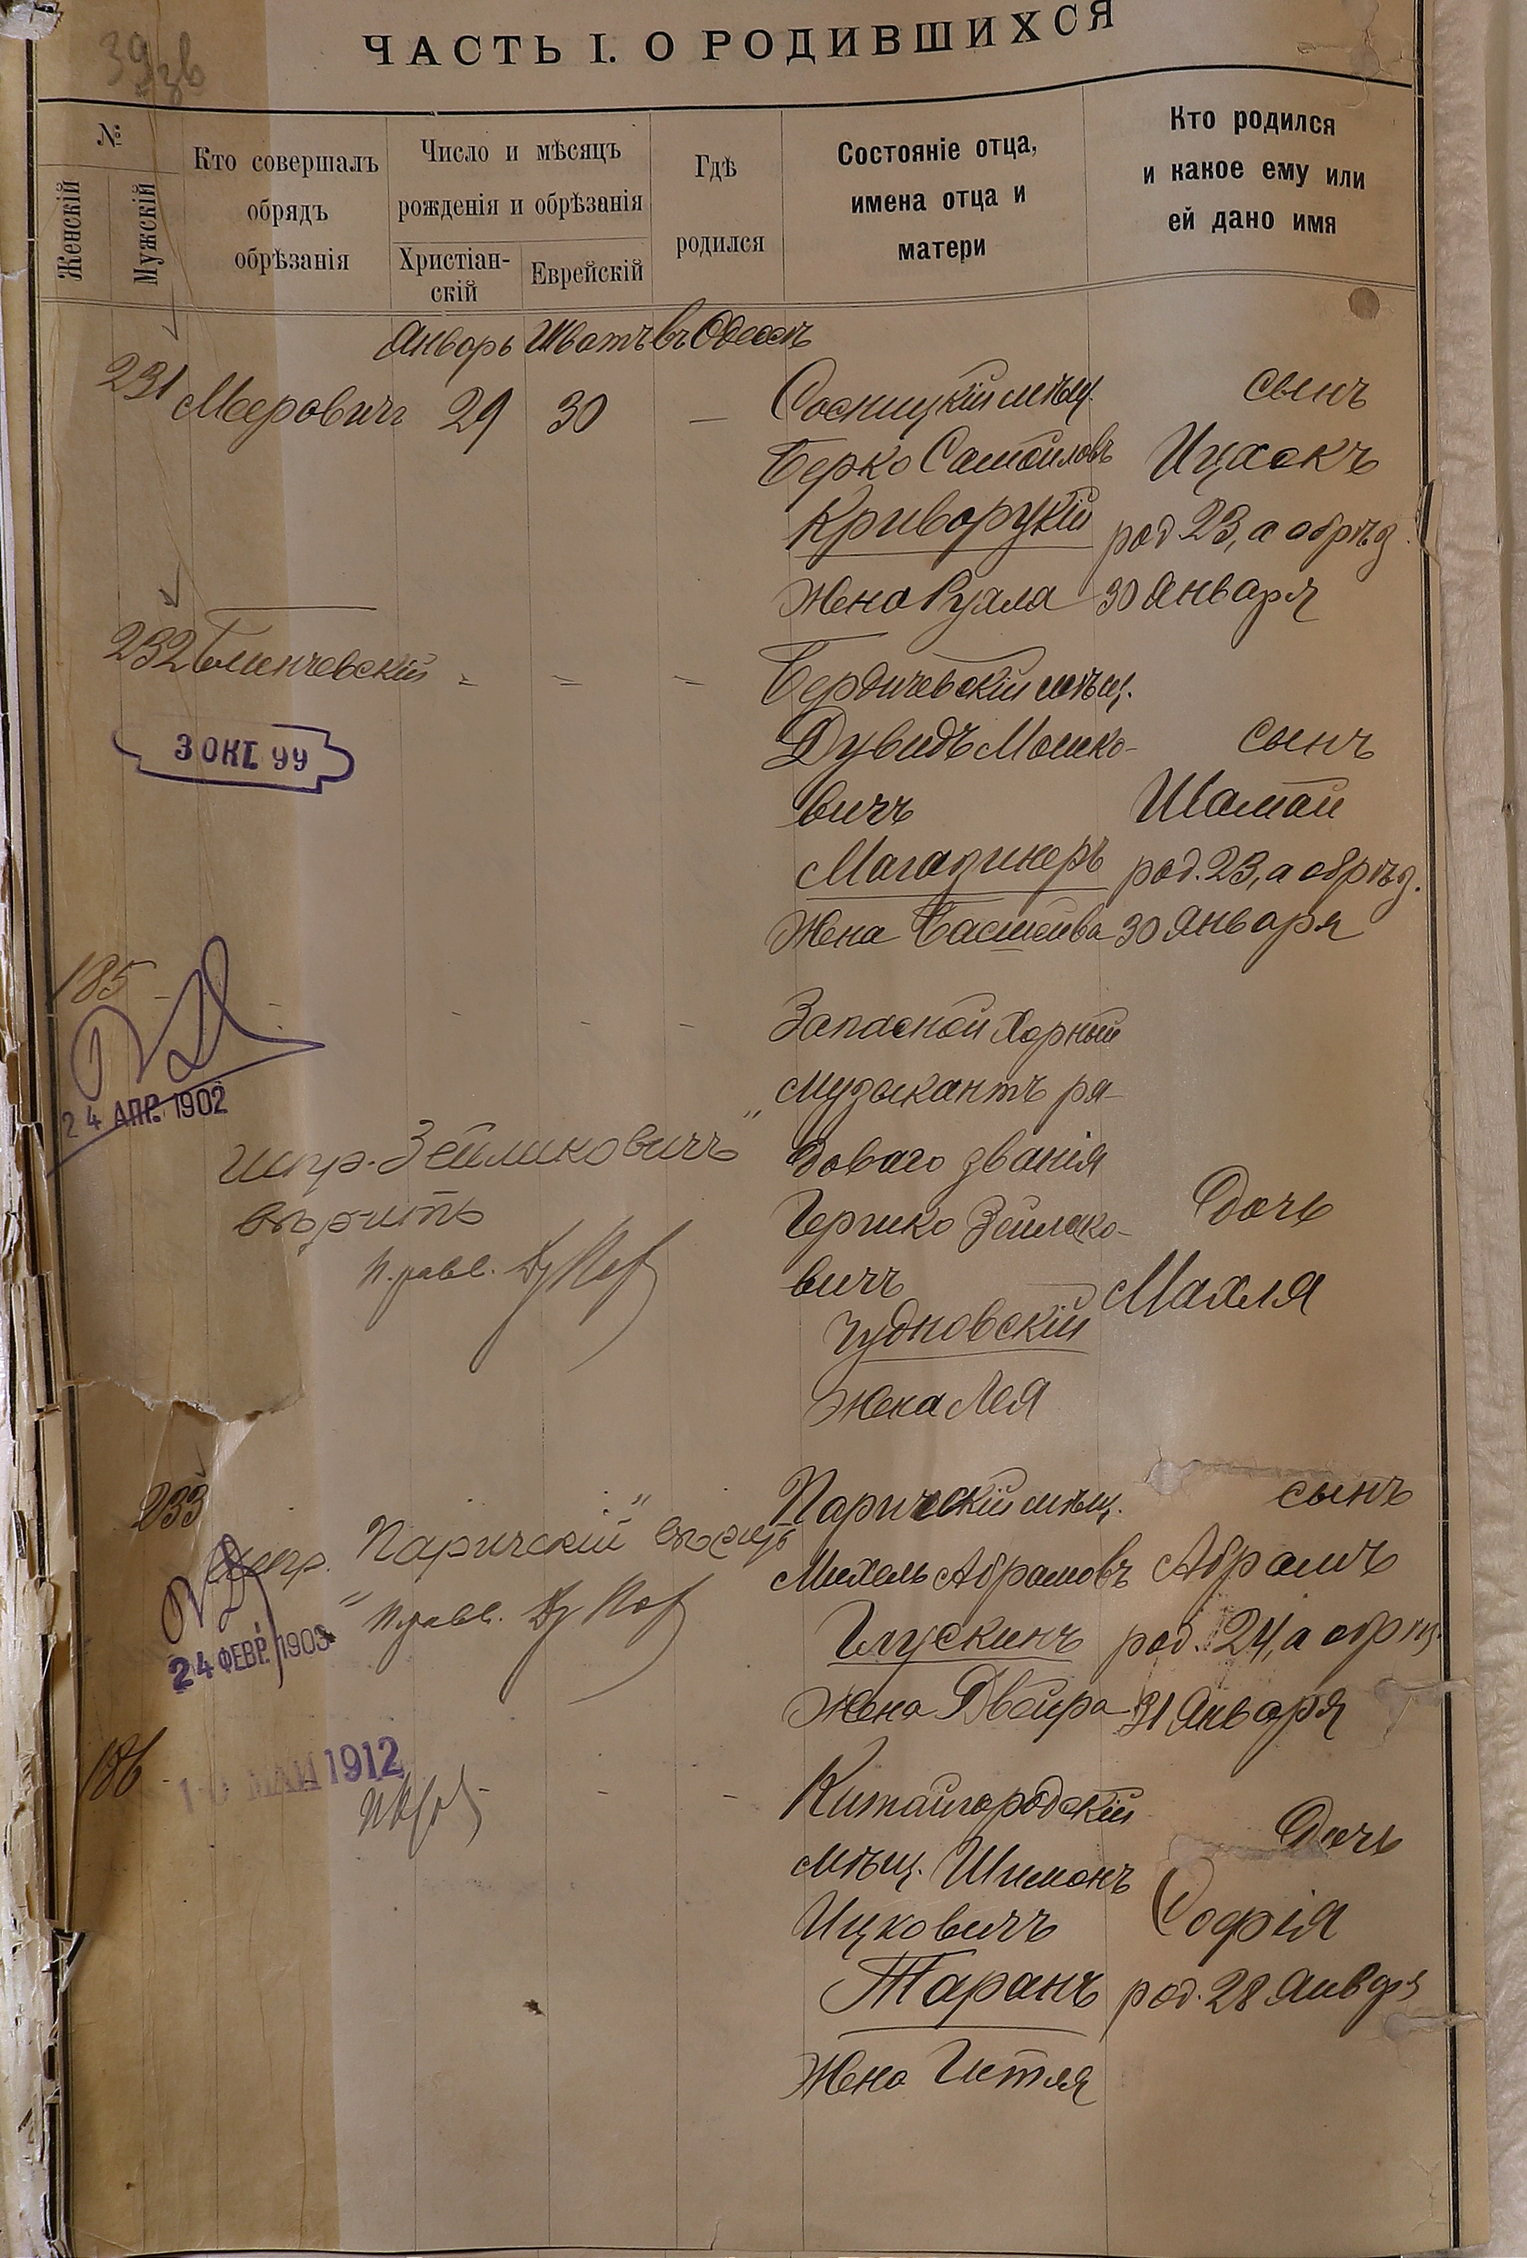 39зв
ЧАСТЬ I. О РОДИВШИХСЯ
№
Женскій
Мужскій
Кто совершалъ
обрядъ
обрѣзанія
Число и мѣсяцъ
рожденія и обрѣзанія
Христіан-
скій
Еврейскій
Гдѣ
родился
Состояніе отца,
имена отца и
матери
Кто родился
и какое ему или
ей дано имя
Январь Шватъ въ Одессѣ
231 Меровичъ 29 30 —
Сосницкій мѣщ.
Берко Самойловъ
Криворукій
Жена Рухла
сынъ
Ицхокъ
род 23, а обрѣз.
30 Января
232 Блинчевскій = = =
3 ОКТ 99
Бердичевскій мѣщ.
Дувидъ Мошко-
вичъ
Магазинеръ
Жена Басшева
сынъ
Шамай
род. 23, а обрѣз.
30 Января
185 - - - - -
24 АПР. 1902
Испр. Зейликовичъ"
вѣрить
Запасной Хорный
Музыкантъ ря-
доваго званія
Гершко Зейлико-
вичъ
Чудновскій
Жена Лея
Дочь
Махля
233
испр. "Паричскій" вѣрить
24 ФЕВР. 1903
Паричскій мѣщ.
Михель Абрамовъ
Глускинъ
Жена Двейра
сынъ
Абрамъ
род. 24, а обрѣз
31 Января
186 - - -
МАЙ 1912
Китайгородскій
мѣщ. Шимонъ
Ицковичъ
Таранъ
Жена Гитля
Дочь
Софія
род. 28 Января